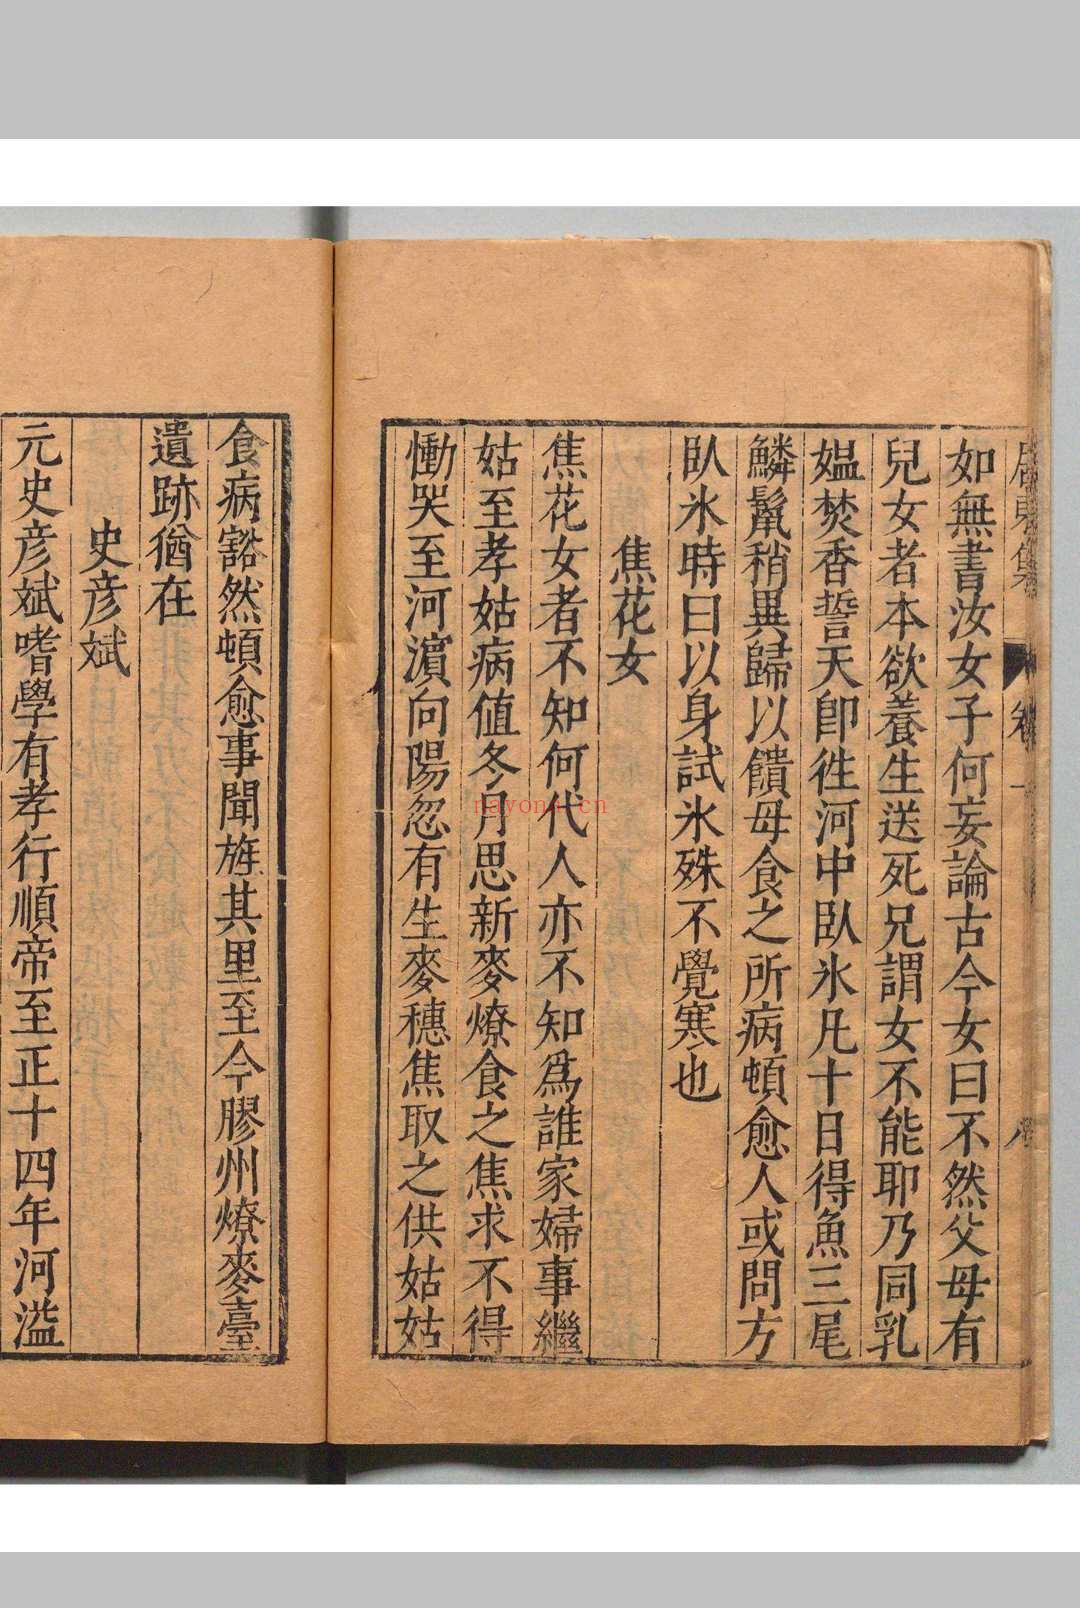 如無書汝女子何妄論古今女曰不然父母有
兒女者本欲養生送死兄謂女不能耶乃同乳
媼焚香誓天卽徃河中臥氷凡十日得魚三尾
鱗鬣稍異歸以饋母食之所病頓愈人或問方
臥氷時曰以身試氷殊不覺寒也
焦花女
焦花女者不知何代人亦不知爲誰家婦事繼
姑至孝姑病值冬月思新麥燎食之焦求不得
慟哭至河濵向陽忽有生麥穗焦取之供姑姑
食病豁然頓愈事聞旌其里至今膠州燎麥臺
遺跡猶在
史彦斌
元史彦斌嗜學有孝行順帝至正十四年河溢
nayona.cn